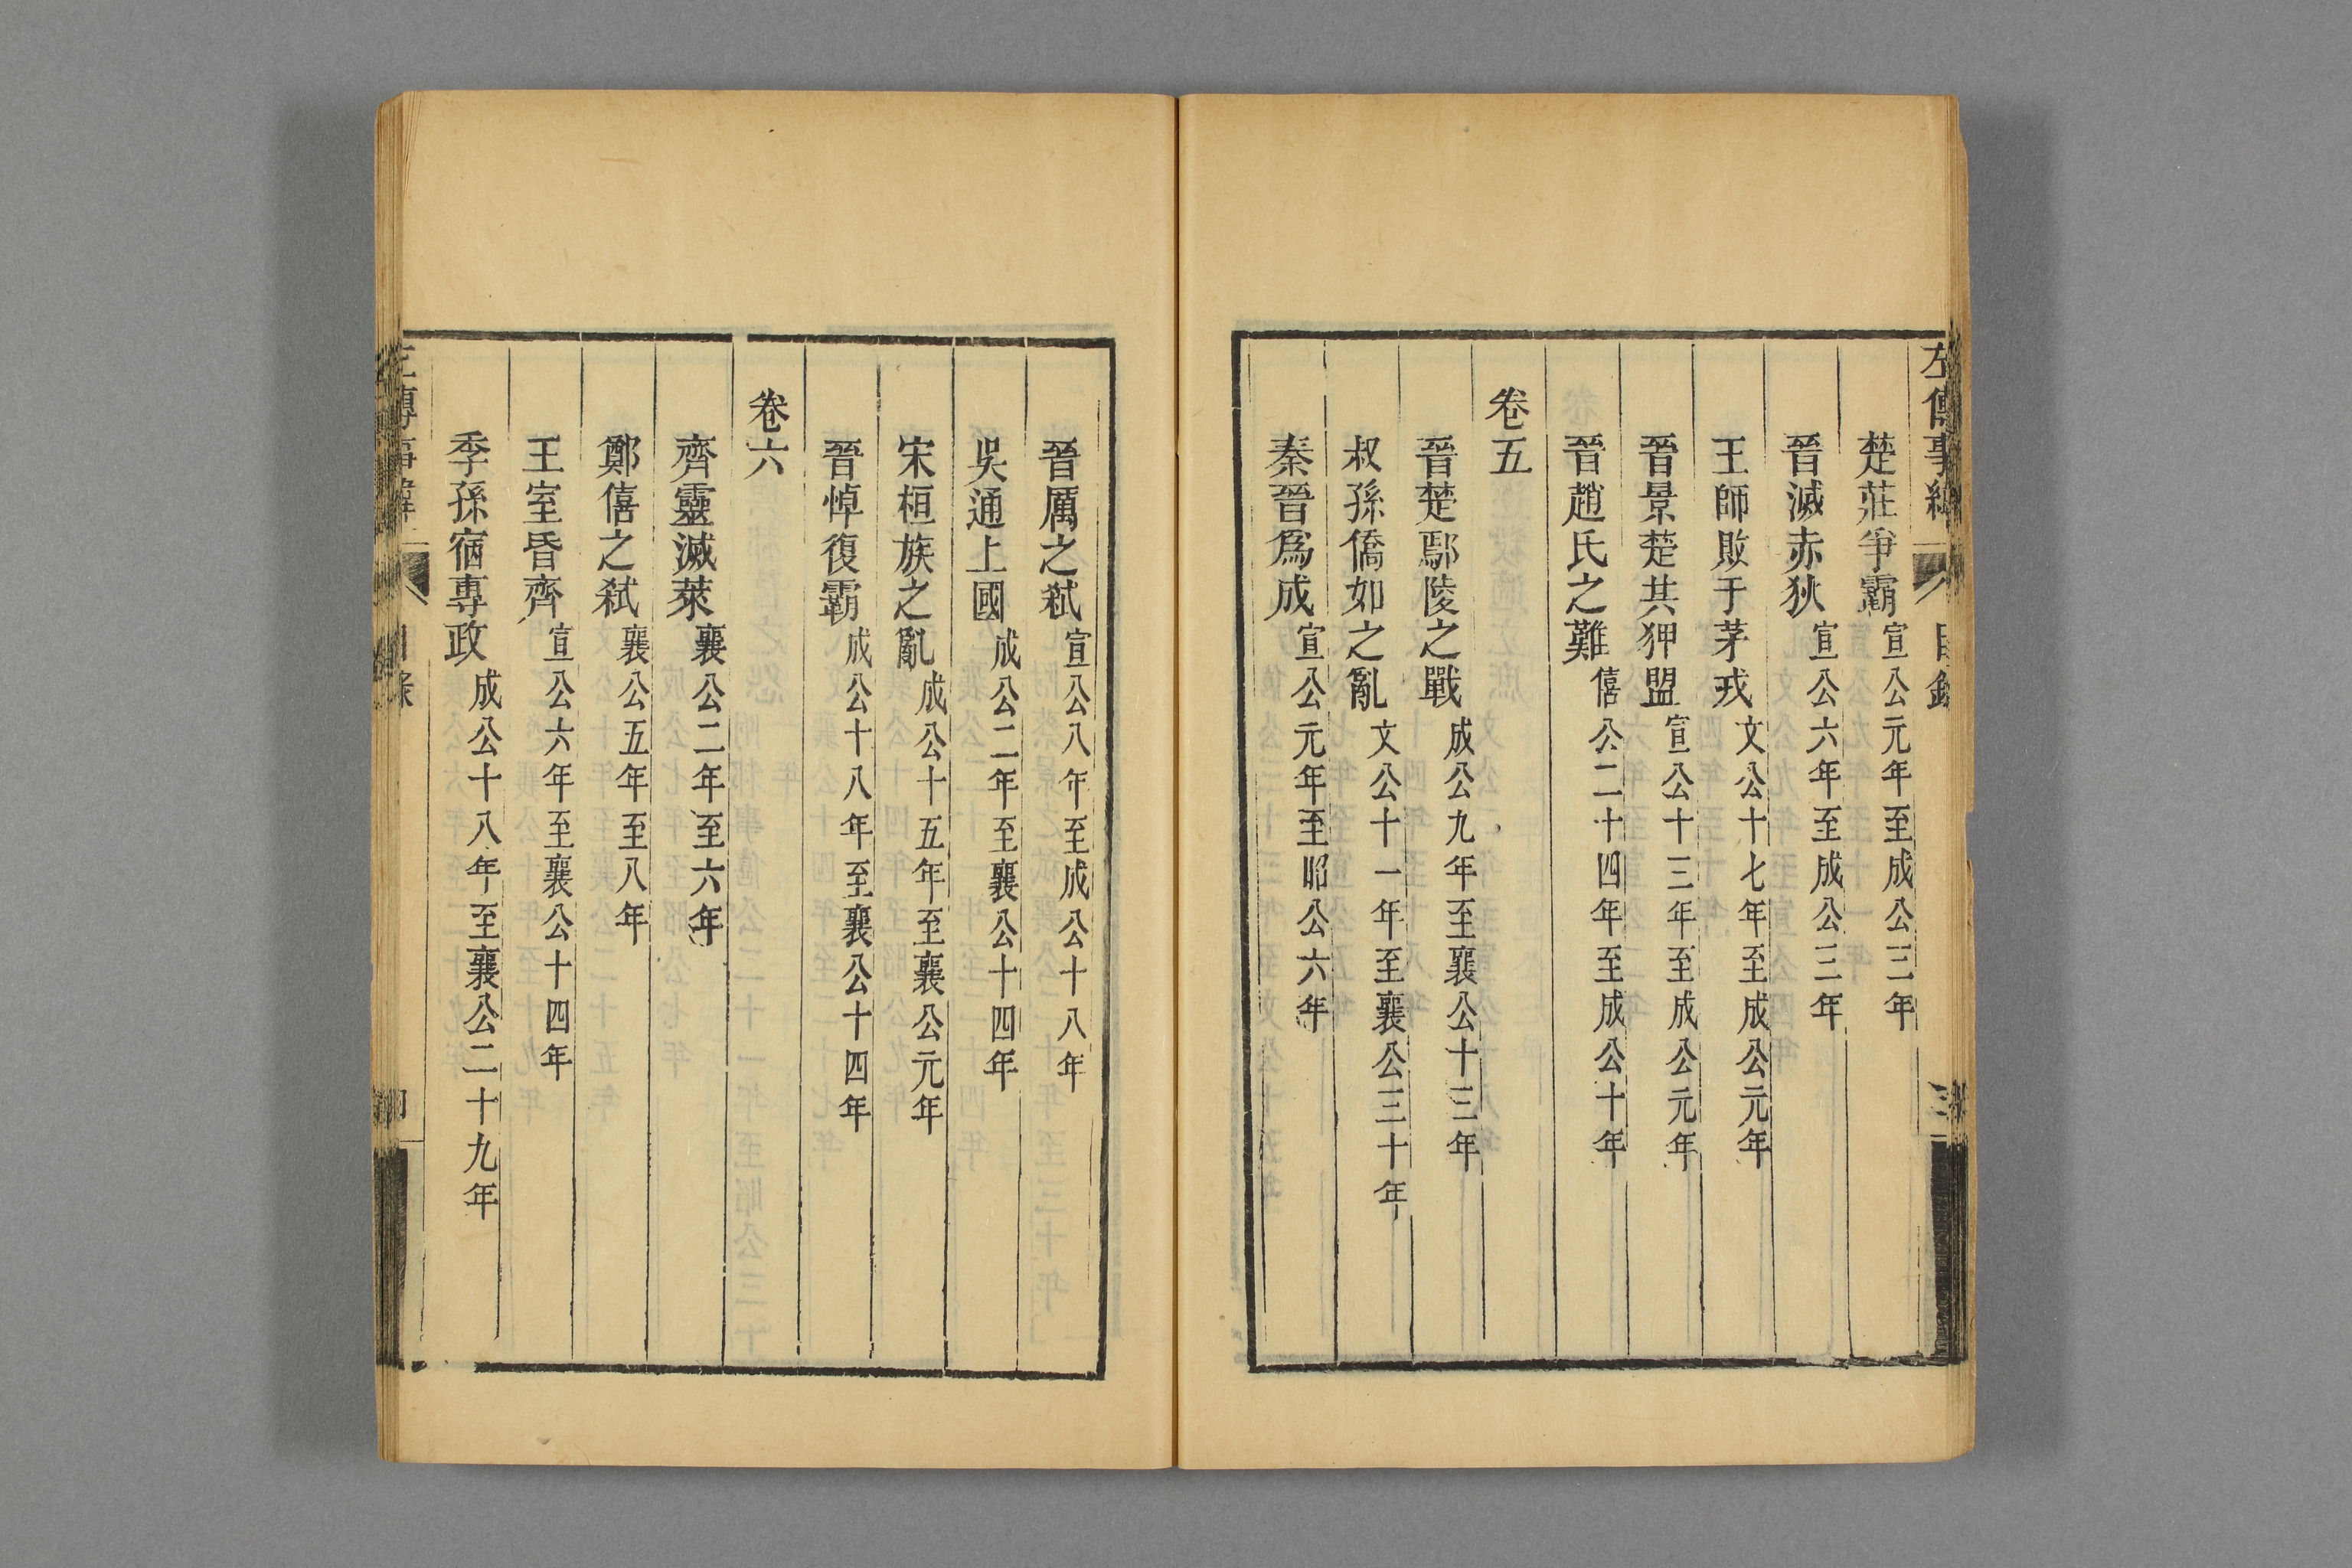 左傳事緯 目錄 三
楚莊爭霸宣公元年至成公三年
晉滅赤狄宣公六年至成公三年
王師敗于茅戎文公十七年至成公元年
晉景楚共狎盟宣公十三年至成公元年
晉趙氏之難僖公二十四年至成公十年
卷五
晉楚鄢陵之戰成公九年至襄公十三年
叔孫僑如之亂文公十一年至襄公三十年
秦晉爲成宣公元年至昭公六年
晉厲之弑宣公八年至成公十八年
吳通上國成公二年至襄公十四年
宋桓族之亂成公十五年至襄公元年
晉悼復霸成公十八年至襄公十四年
卷六
齊靈滅萊襄公二年至六年
鄭僖之弑襄公五年至八年
王室昏齊宣公六年至襄公十四年
季孫宿專政成公十八年至襄公二十九年
左傳事緯 目錄 四